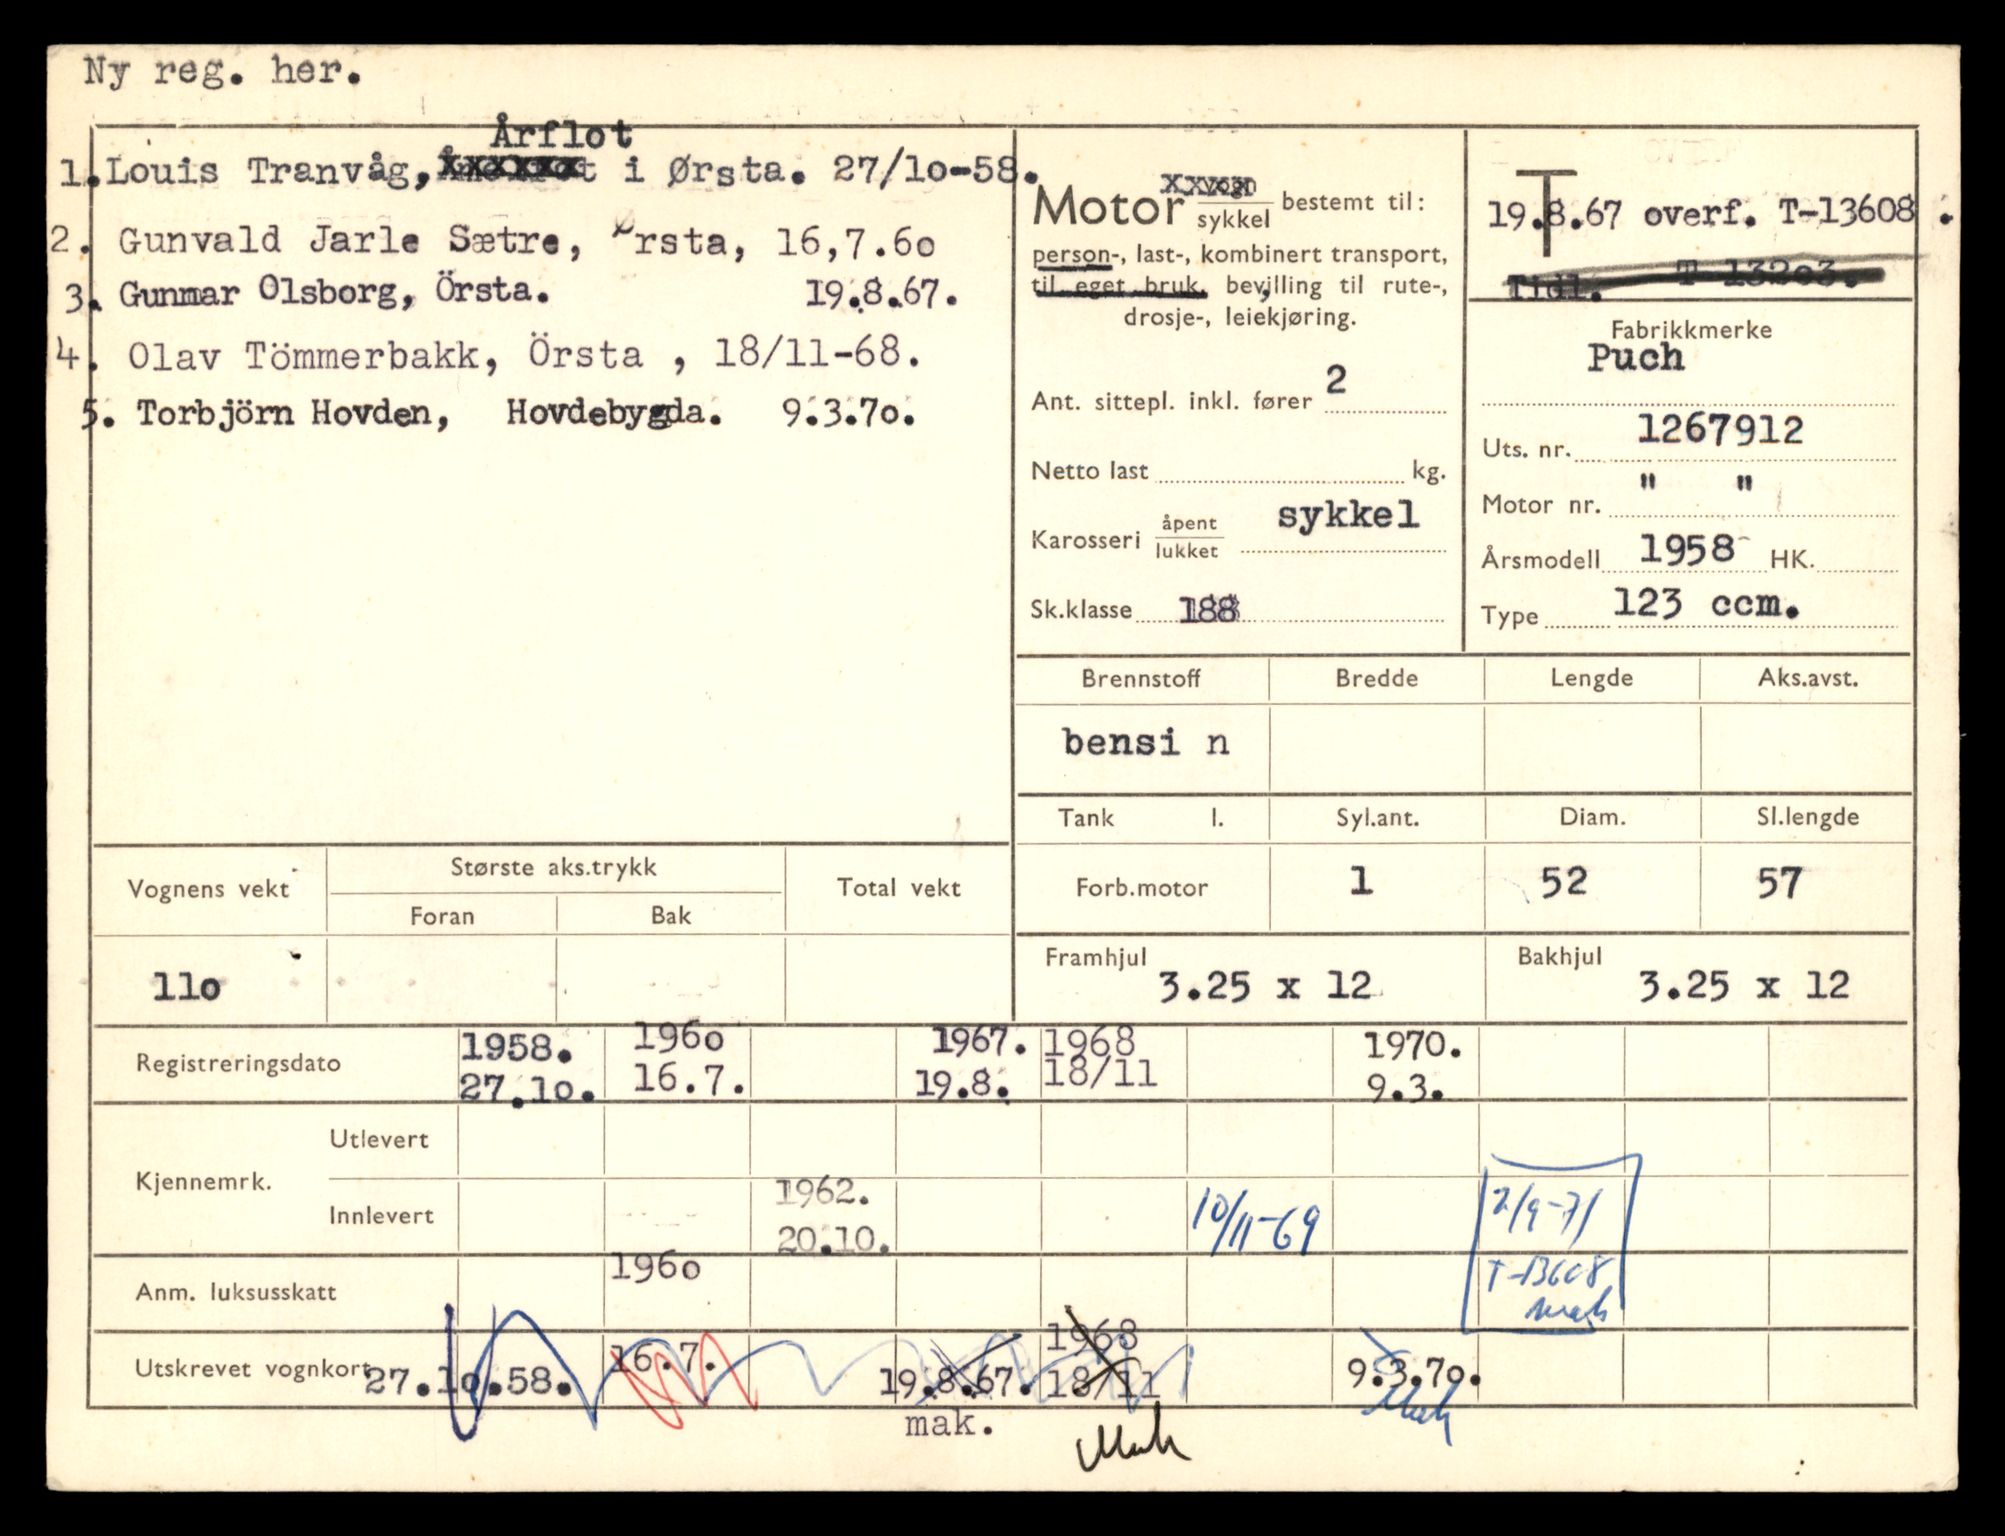 Ny reg. her.
Årflot
1. Louis Tranvåg, i Ørsta. 27/10-58.
2. Gunvald Jarle Sætre, Ørsta, 16,7.6o
3. Gunmar Olsborg, Örsta. 19.8.67.
4. Olav Tömmerbakk, Örsta , 18/11-68.
5. Torbjörn Hovden, Hovdebygda. 9.3.7o.
Motor vogn/sykkel bestemt til:
person-, last-, kombinert transport,
til eget bruk, bevilling til rute-,
drosje-, leiekjøring.
Ant. sittepl. inkl. fører 2
Netto last kg.
Karosseri åpent/lukket sykkel
Sk.klasse 188
T
19.8.67 overf. T-13608 .
Tidl. T-132o3.
Fabrikkmerke
Puch
Uts. nr. 1267912
Motor nr. " "
Årsmodell 1958 HK.
Type 123 ccm.
Brennstoff Bredde Lengde Aks.avst.
bensi n
Tank l. Syl.ant. Diam. Sl.lengde
Forb.motor 1 52 57
Framhjul 3.25 x 12 Bakhjul 3.25 x 12
Vognens vekt Største aks.trykk Total vekt
Foran Bak
11o
Registreringsdato 1958. 196o 1967. 1968 1970.
27.1o. 16.7. 19.8. 18/11 9.3.
Kjennemrk. Utlevert
Innlevert 1962. 20.10. 10/11-69 2/9-71
T-13608
mak
Anm. luksusskatt 196o
Utskrevet vognkort 27.1o.58. 16.7. 19.8.67. 1968 18/11 9.3.7o.
mak. Mak Mak